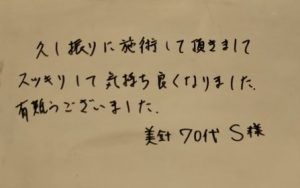 久し振りに施術して頂きまして
スッキリして気持ち良くなりました.
有難うございました.
美針 70代 S様